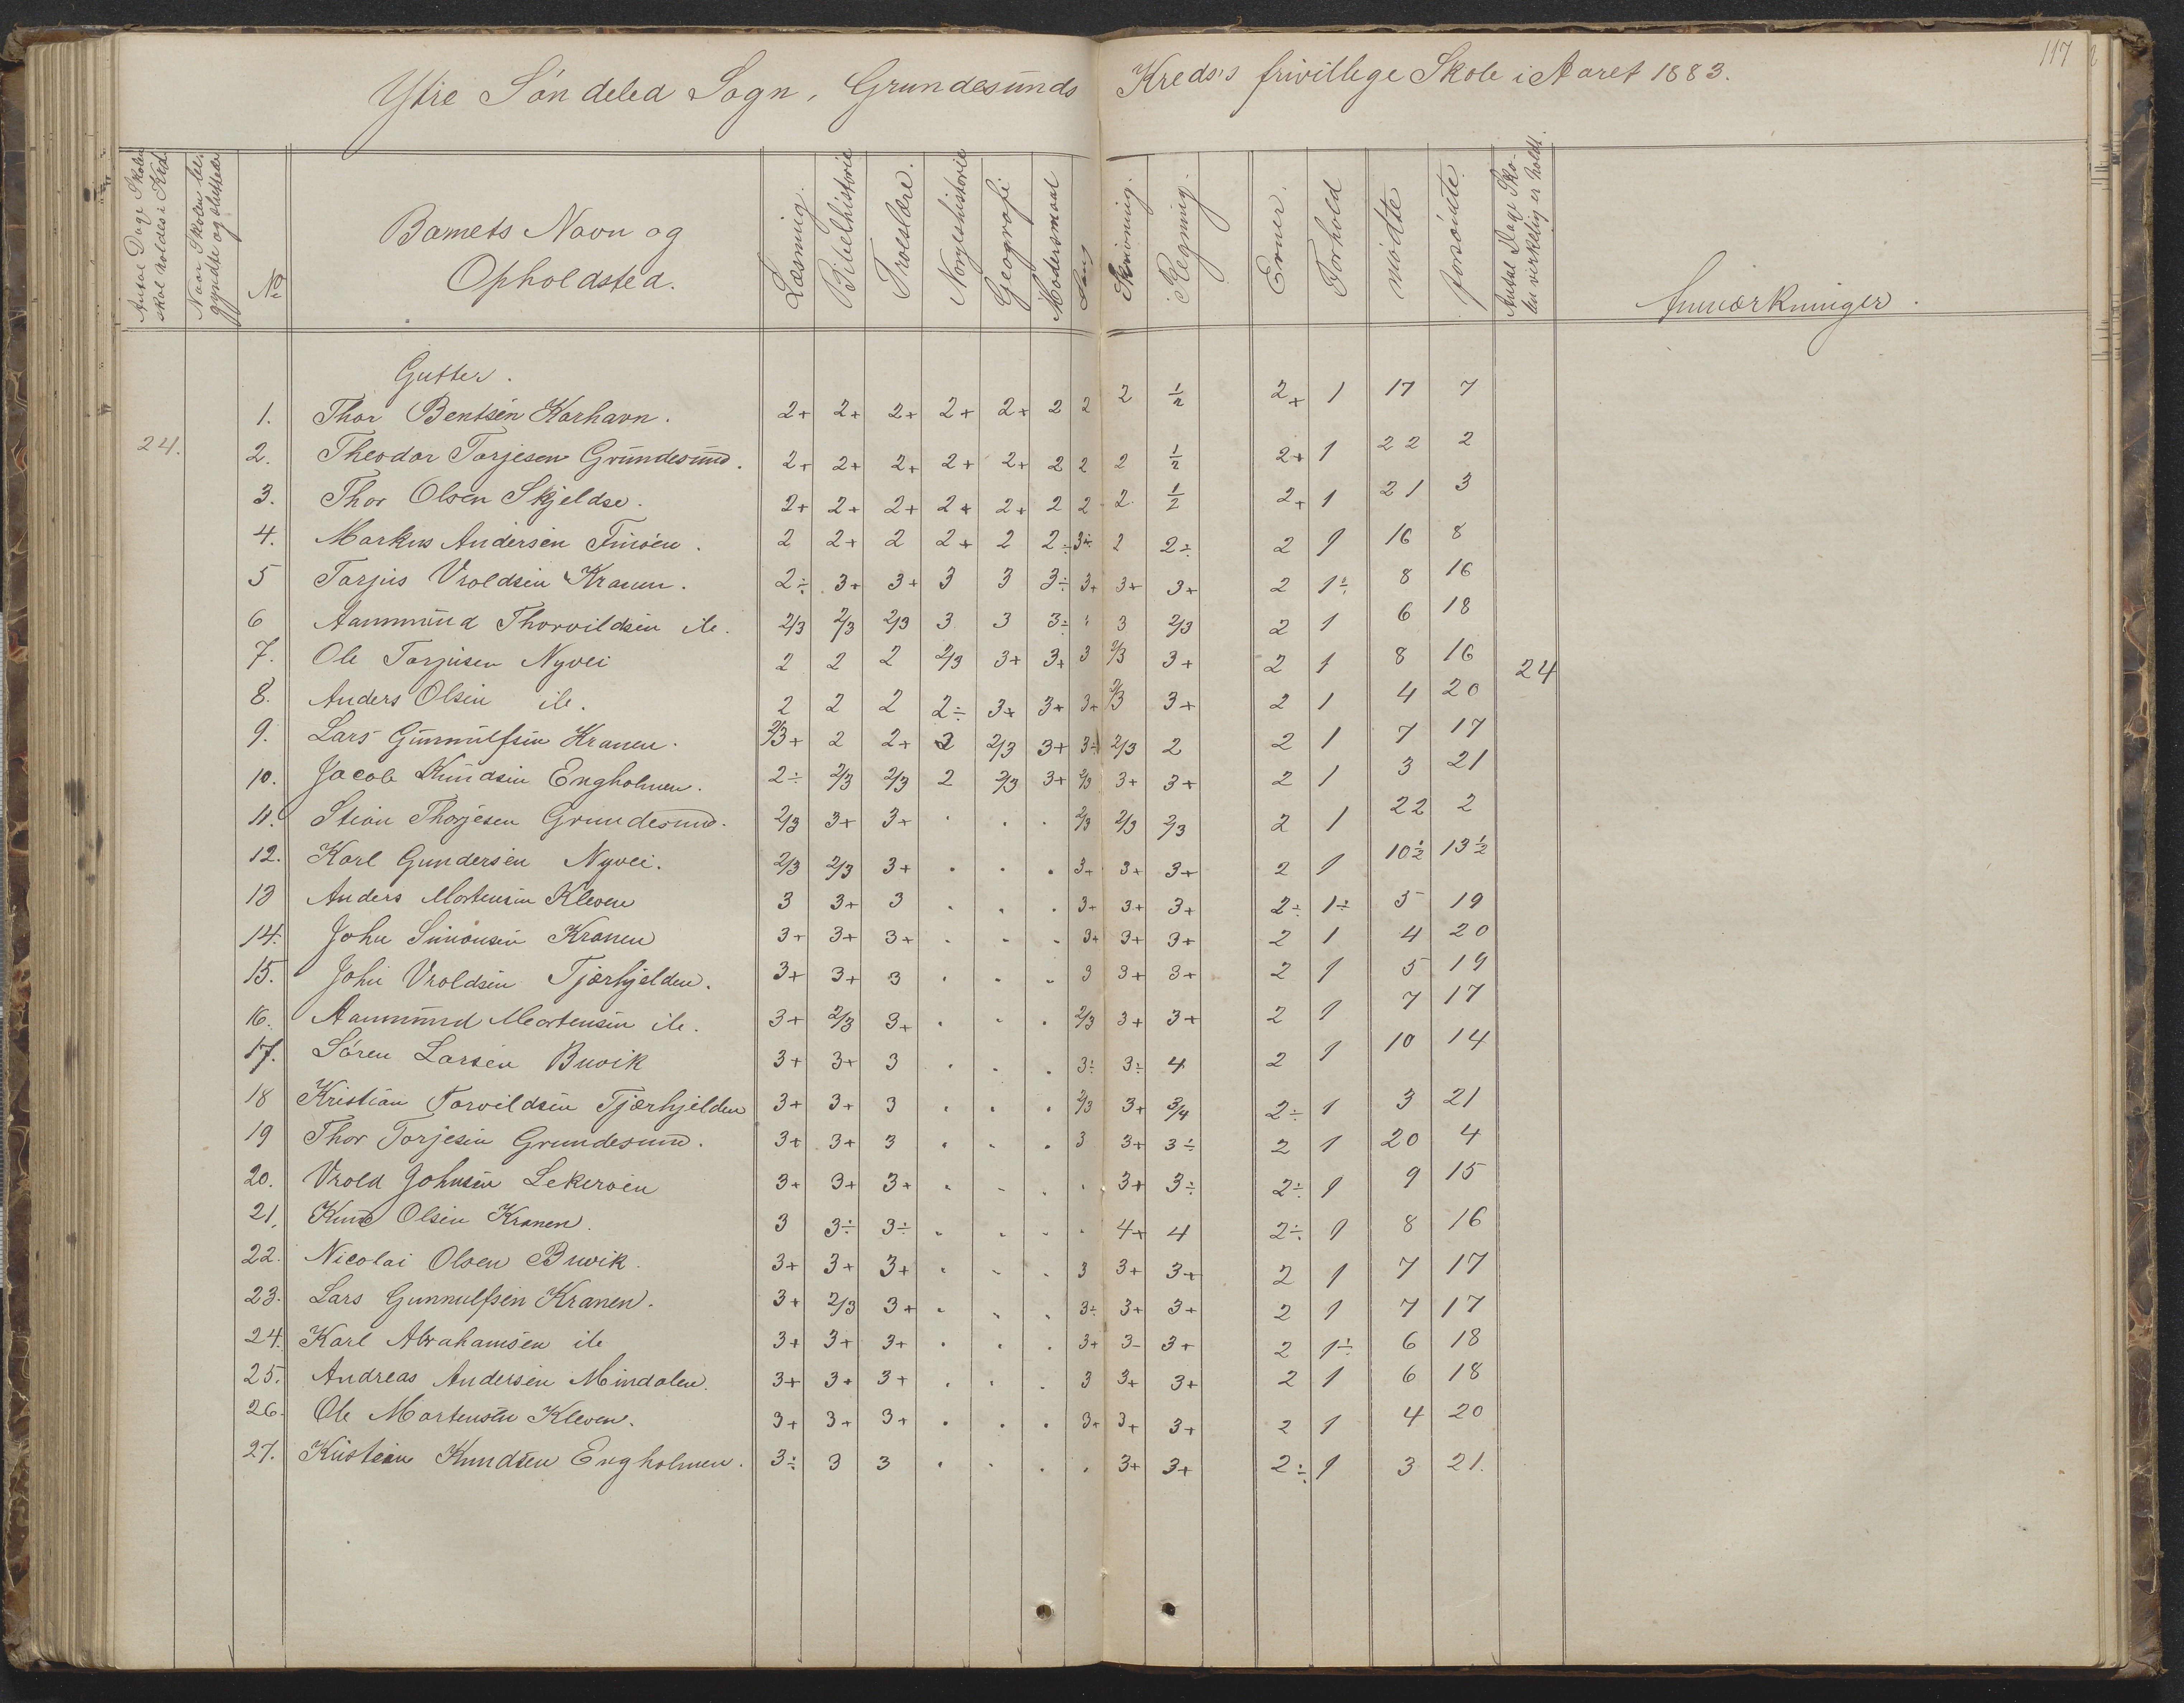 117
Ytre Søndeled Sogn, Grundesunds Kreds's frivillege Skole i Aaret 1883.
Antal Dage Skolen skal holdes i Kred.
Naar Skolen begyndte og sluttede
No
Barnets Navn og
Opholdsted.
Læsning.
Bibelhistorie
Troeslære.
Norgeshistorie
Geografi
Modersmaal
Sang
Skrivning.
Regning.
Evner.
Forhold
mødte
forsømte
Antal Dage Skolen virkelig er holdt.
Anmærkninger.
Gutter.
1. Thor Bentsen Korhavn. 2+ 2+ 2+ 2+ 2+ 2 2 2 1/2 2+ 1 17 7
24. 2. Theodor Torjesen Grundesund. 2+ 2+ 2+ 2+ 2+ 2 2 2 1/2 2+ 1 22 2
3. Thor Olsen Skjeldsø. 2+ 2+ 2+ 2+ 2+ 2 2 2 1/2 2+ 1 21 3
4. Markus Andersen Finsøen. 2 2+ 2 2+ 2 2÷ 3÷ 2 2÷ 2 1 16 8
5 Torjus Vroldsen Kranen. 2÷ 3+ 3+ 3 3 3÷ 3+ 3+ 3+ 2 1÷ 8 16
6 Aanmund Thorvildsen ib. 2/3 2/3 2/3 3 3 3÷ " 3 2/3 2 1 6 18
7. Ole Torjusen Nyvei 2 2 2 2/3 3+ 3+ 3 2/3 3+ 2 1 8 16 24
8. Anders Olsen ib. 2 2 2 2÷ 3+ 3+ 3+ 2/3 3+ 2 1 4 20
9. Lars Gunnulfsen Kranen. 2/3+ 2 2+ 2 2/3 3+ 3÷ 2/3 2 2 1 7 17
10. Jacob Knudsen Engholmen. 2÷ 2/3 2/3 2 2/3 3+ 2/3 3+ 3+ 2 1 3 21
11. Stian Thorjesen Grundesund. 2/3 3+ 3+ . . . 2/3 2/3 2/3 2 1 22 2
12. Karl Gundersen Nyvei. 2/3 2/3 3+ . . . 3+ 3+ 3+ 2 1 10 1/2 13 1/2
13 Anders Mortensen Kleven 3 3+ 3 . . . 3+ 3+ 3+ 2÷ 1÷ 5 19
14. John Simonsen Kranen 3+ 3+ 3+ . . . 3+ 3+ 3+ 2 1 4 20
15. John Vroldsen Tjærhjelden. 3+ 3+ 3 . . . 3 3+ 3+ 2 1 5 19
16. Aanmund Mortensen ib. 3+ 2/3 3+ . . . 2/3 3+ 3+ 2 1 7 17
17. Søren Larsen Buvik 3+ 3+ 3 . . . 3÷ 3÷ 4 2 1 10 14
18 Kristian Torvildsen Tjærhjelden 3+ 3+ 3 . . . 2/3 3+ 3/4 2÷ 1 3 21
19 Thor Torjesen Grundesund. 3+ 3+ 3 . . . 3 3+ 3÷ 2 1 20 4
20. Vrold Johnsen Lekerøen 3+ 3+ 3+ . . . . 3+ 3÷ 2÷ 1 9 15
21. Knud Olsen Kranen. 3 3÷ 3÷ . . . . 4+ 4 2÷ 1 8 16
22. Nicolai Olsen Buvik. 3+ 3+ 3+ . . . 3 3+ 3+ 2 1 7 17
23. Lars Gunnulfsen Kranen. 3+ 2/3 3+ . . . 3÷ 3+ 3+ 2 1 7 17
24. Karl Abrahamsen ib 3+ 3+ 3+ . . . 3+ 3- 3+ 2 1÷ 6 18
25. Andreas Andersen Mindalen. 3+ 3+ 3+ . . . 3 3+ 3+ 2 1 6 18
26. Ole Mortensen Kleven. 3+ 3+ 3+ . . . 3+ 3+ 3+ 2 1 4 20
27. Kristian Knudsen Engholmen. 3÷ 3 3 . . . . 3+ 3+ 2÷ 1 3 21.